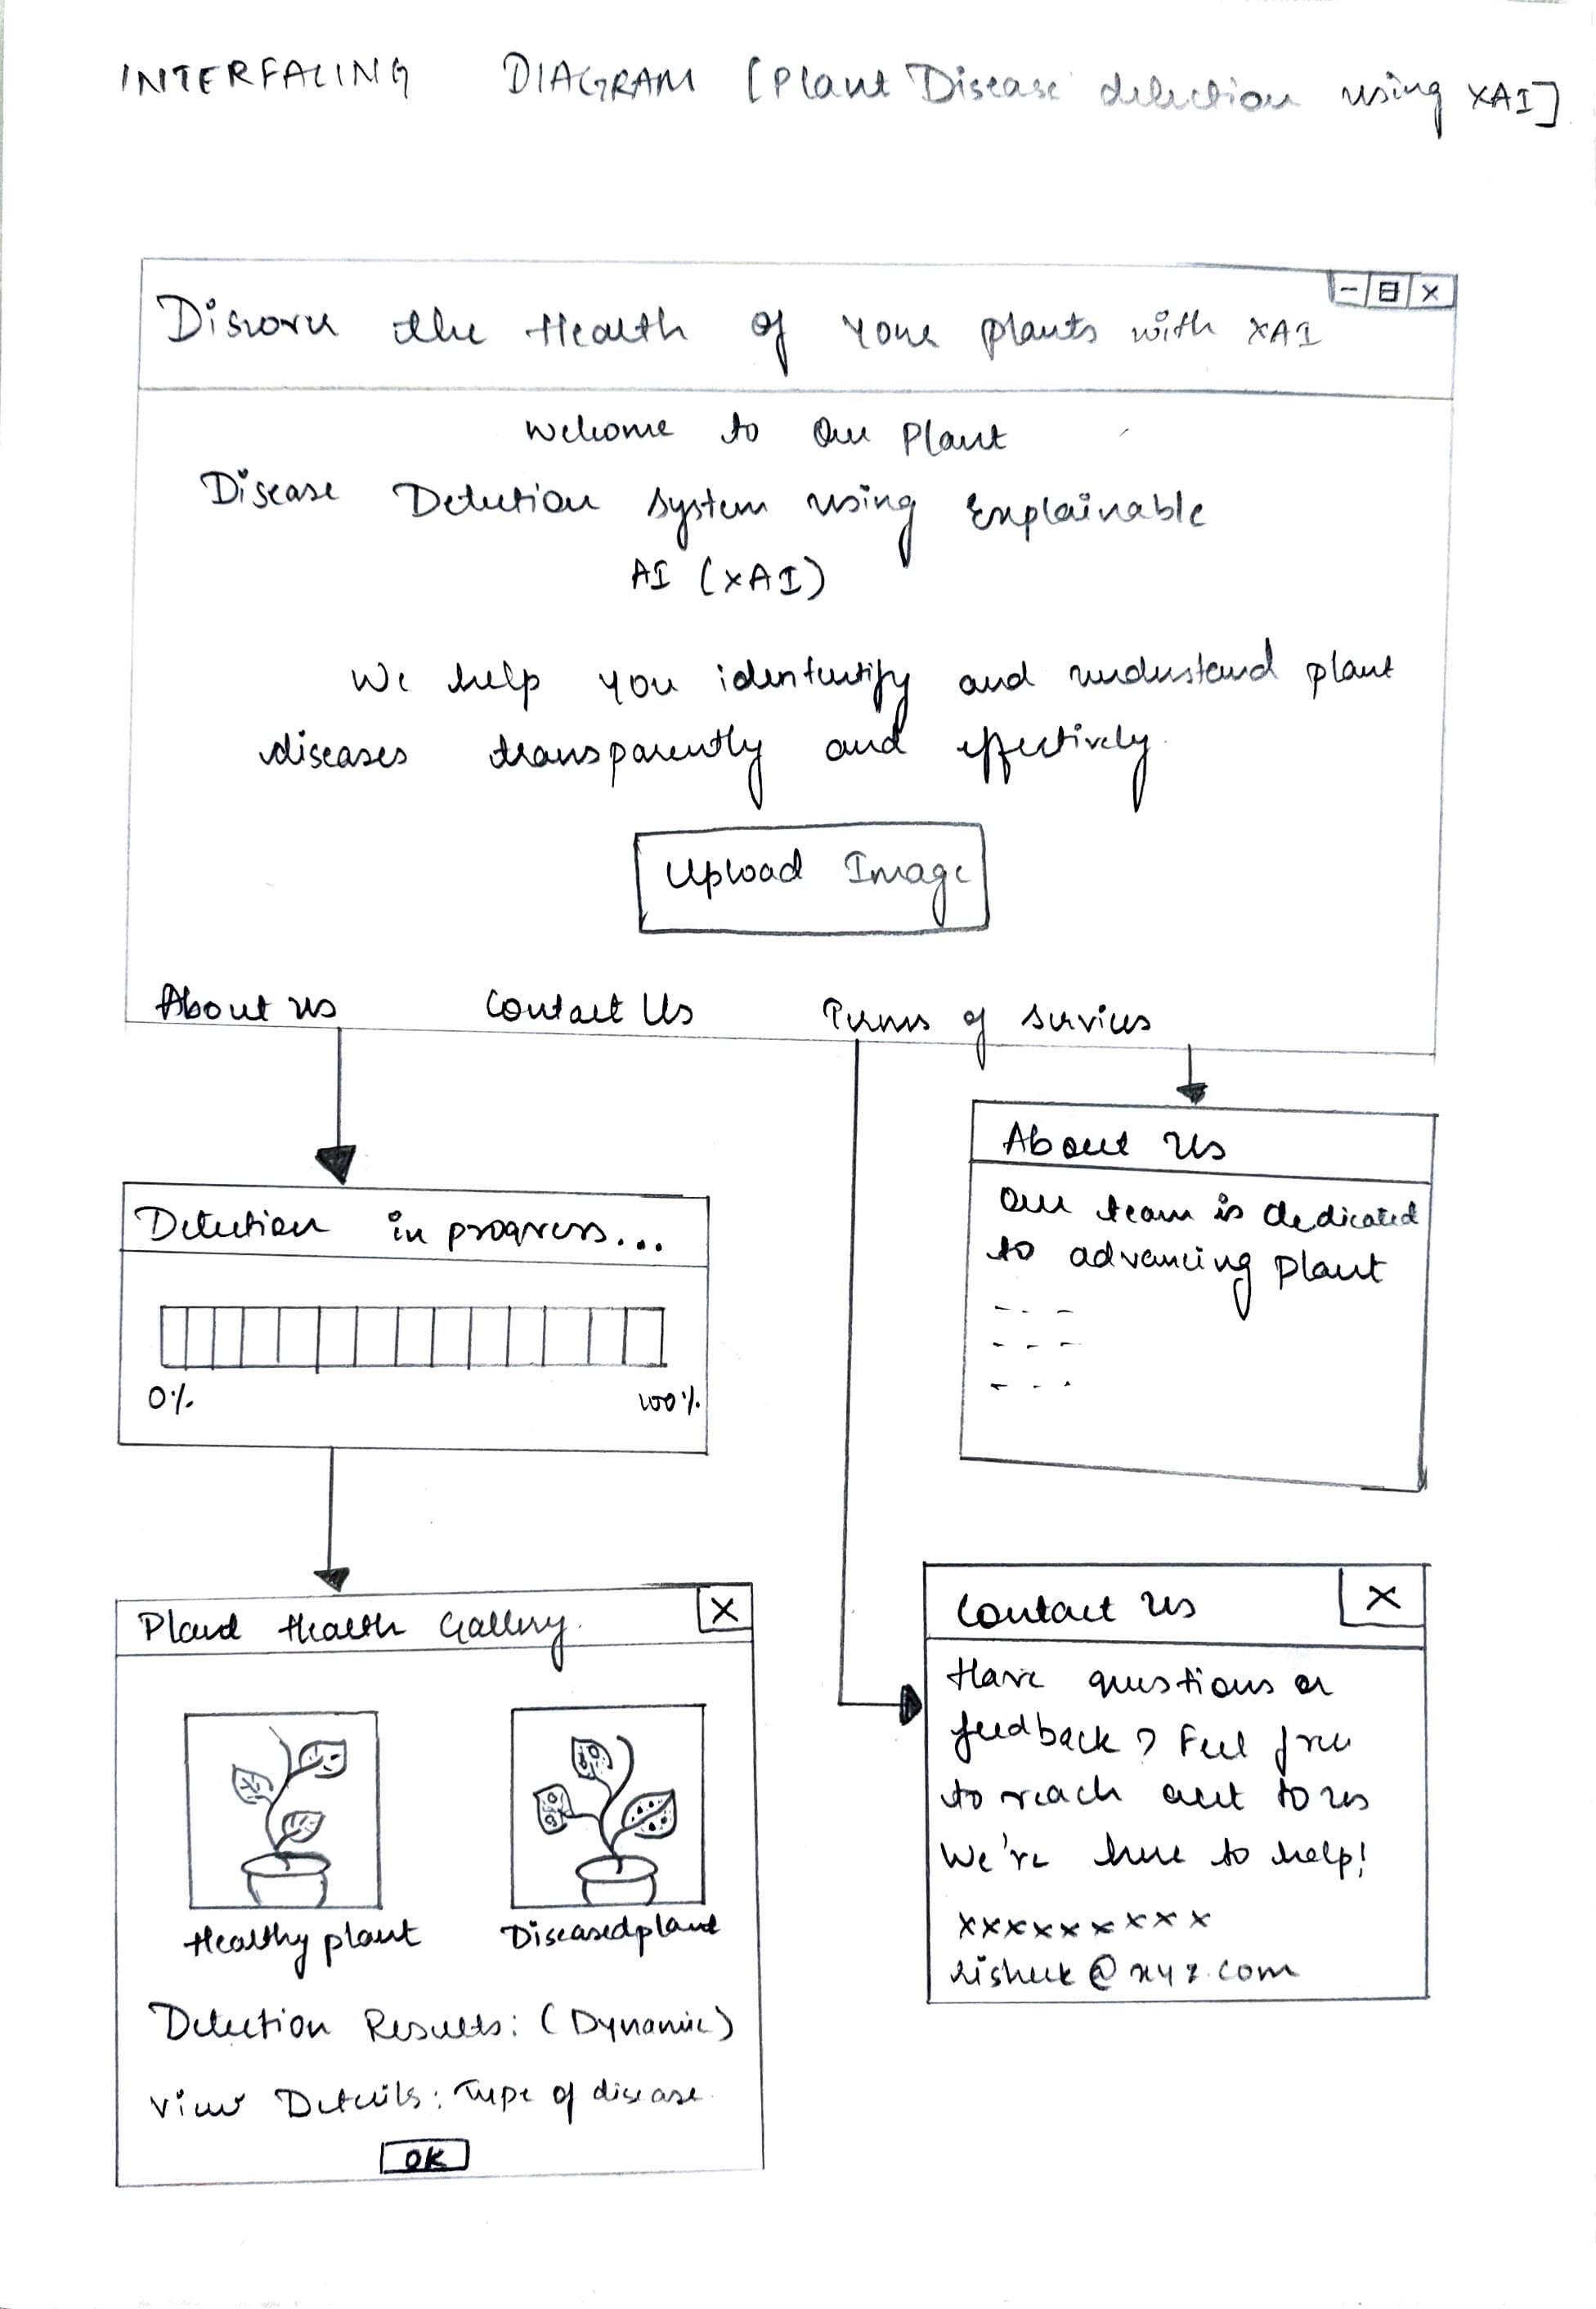 INTERFACING DIAGRAM [Plant Disease detection using XAI]
Discover the Health of Your plants with XAI
Welcome to Our Plant
Disease Detection system using Explainable
AI (XAI)
We help you idententify and understand plant
diseases transparently and effectively.
Upload Image
About us Contact Us Terms of services
About Us
Our team is dedicated
to advancing plant
Detection in progress...
0% 100%
Plant Health Gallery.
X
Healthy plant Diseased plant
Detection Results: (Dynamic)
View Details: Type of disease.
OK
Contact us
X
Have questions or
feedback? Feel free
to reach out to us
We're here to help!
xxxxxxxxxx
@xyz.com